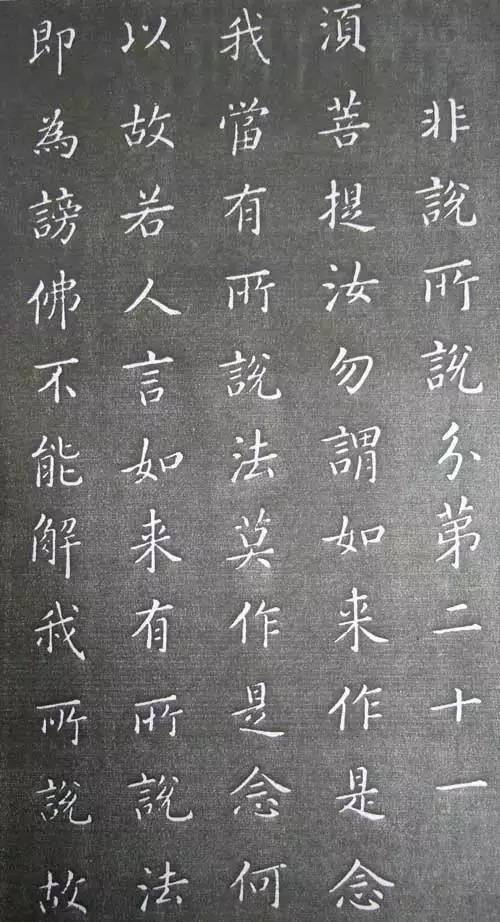 非說所說分苐二十一
湏菩提汝勿謂如来作是念
我當有所說法莫作是念何
以故若人言如来有所說法
即為謗佛不能解我所說故